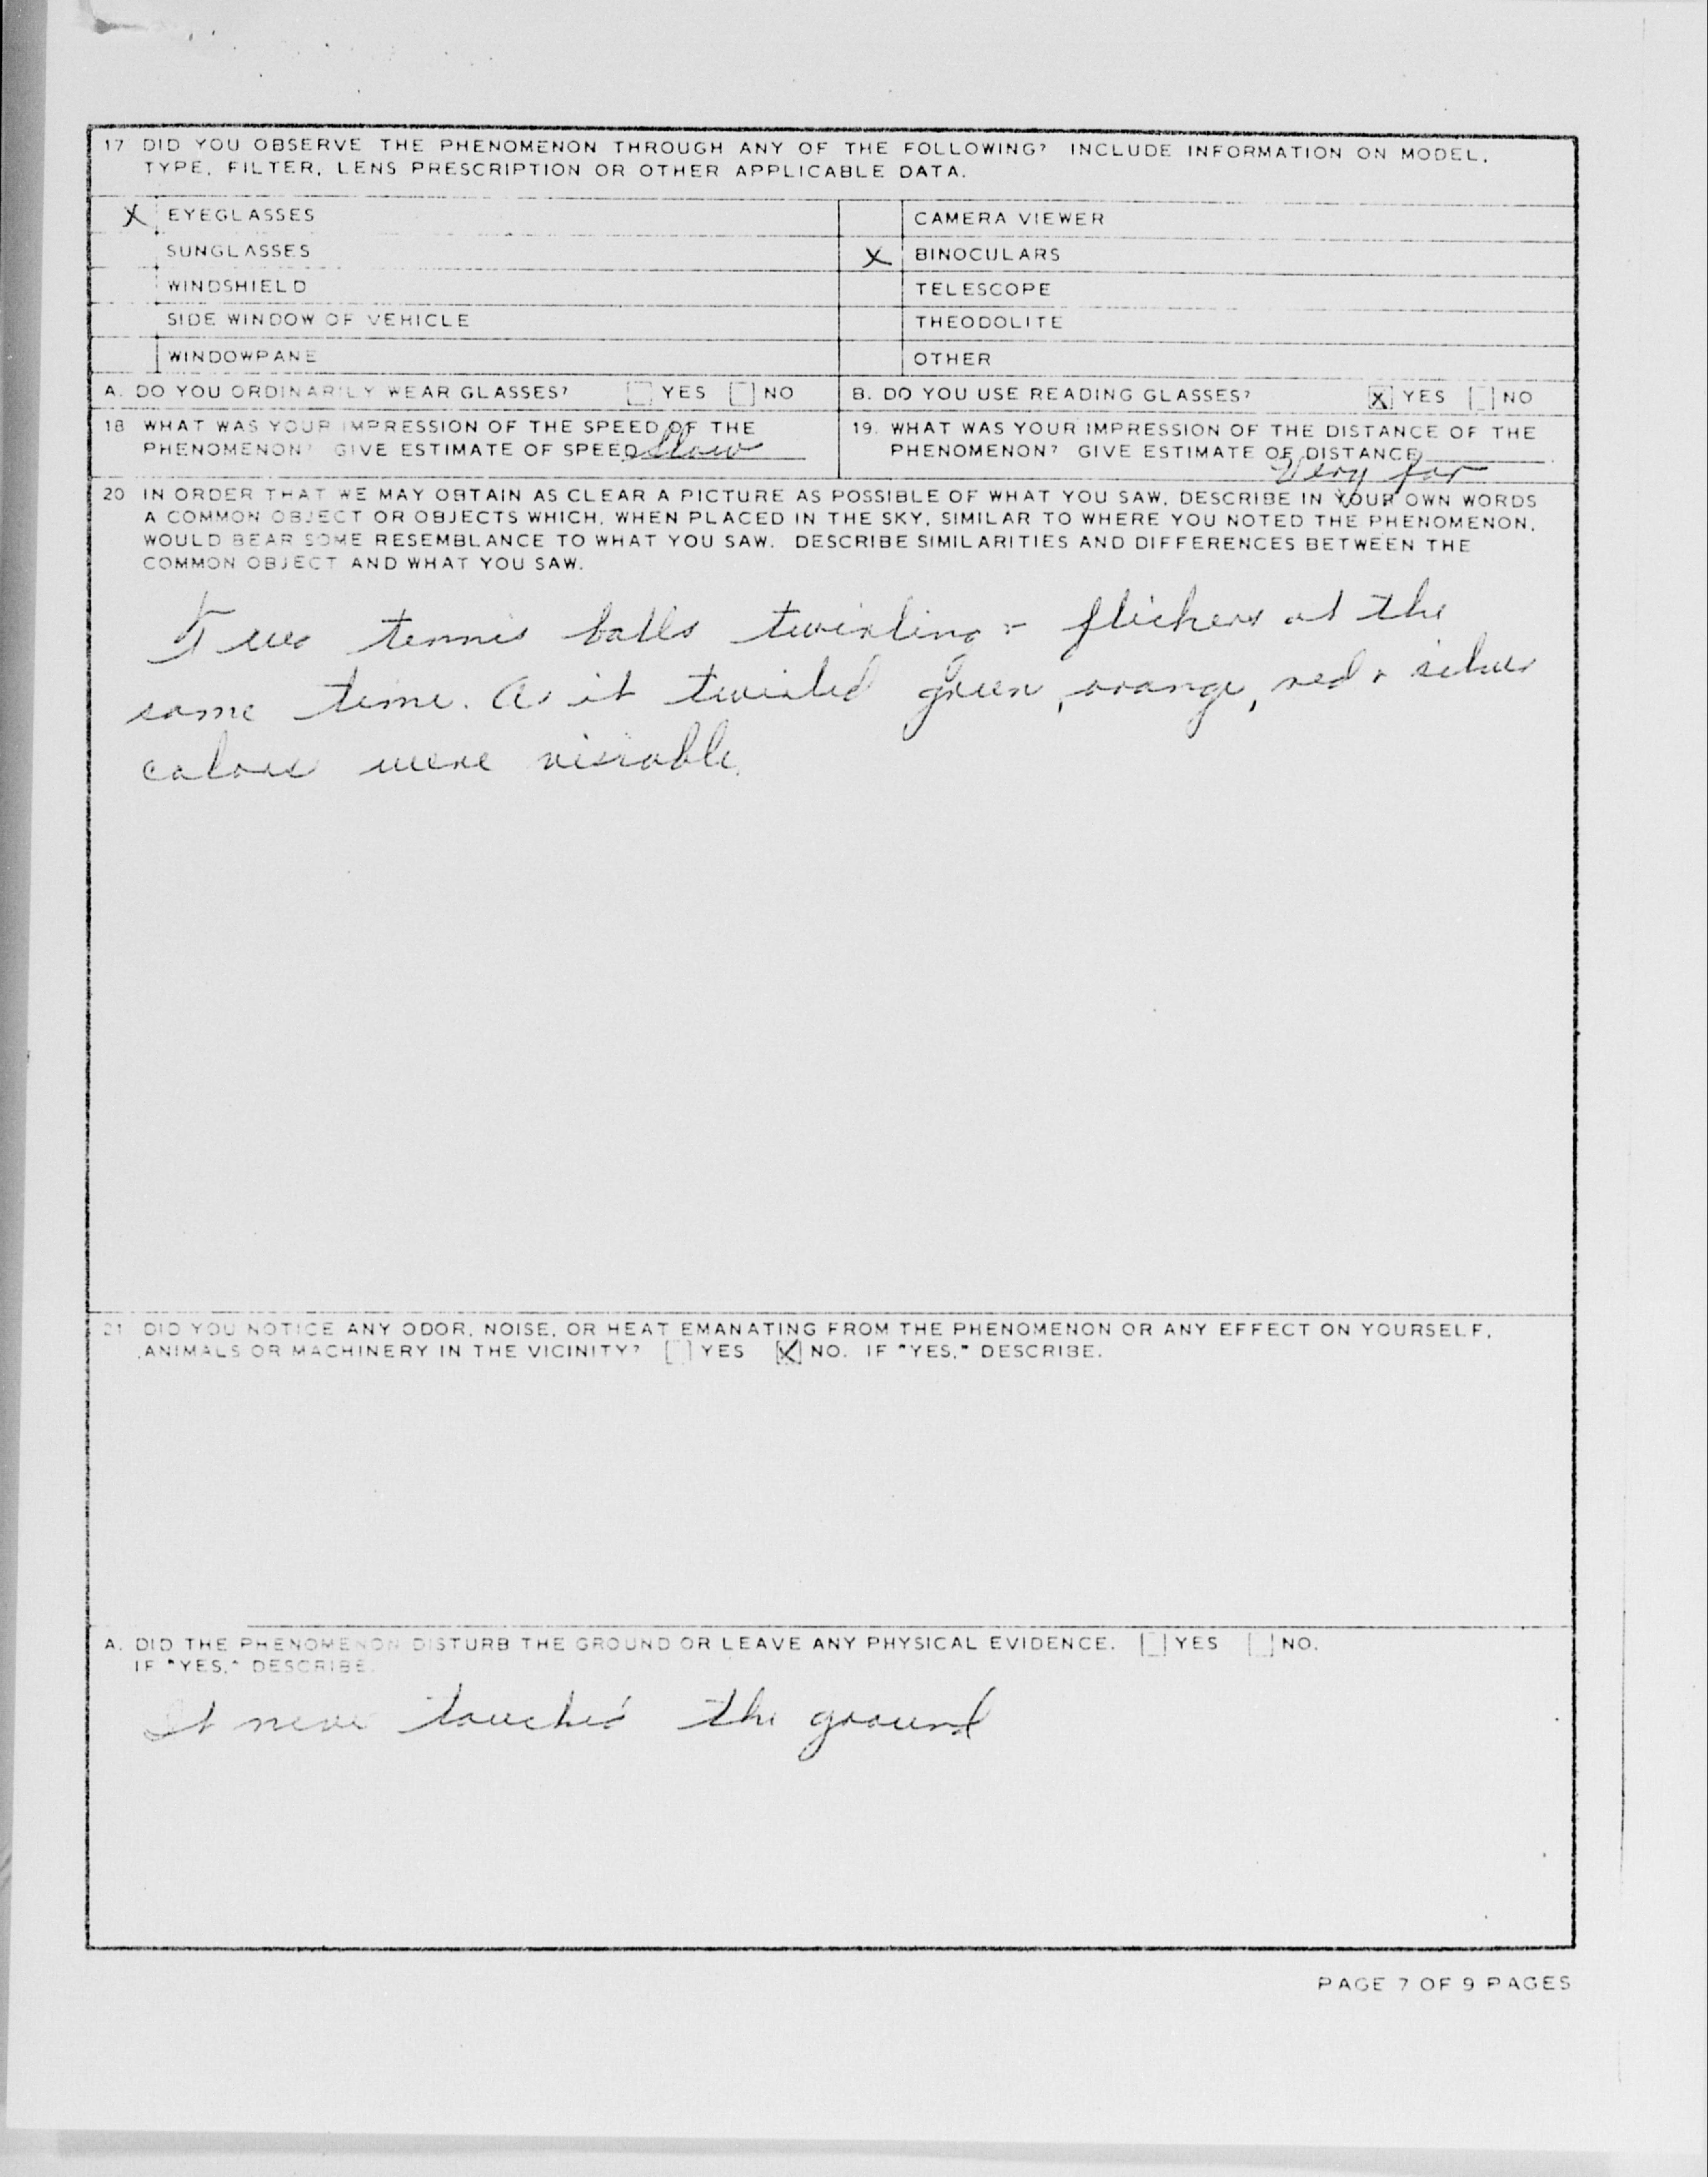 17 DID YOU OBSERVE THE PHENOMENON THROUGH ANY OF THE FOLLOWING? INCLUDE INFORMATION ON MODEL,
TYPE, FILTER, LENS PRESCRIPTION OR OTHER APPLICABLE DATA.
X EYEGLASSES
SUNGLASSES
WINDSHIELD
SIDE WINDOW OF VEHICLE
WINDOWPANE
CAMERA VIEWER
X BINOCULARS
TELESCOPE
THEODOLITE
OTHER
A. DO YOU ORDINARILY WEAR GLASSES? YES NO
B. DO YOU USE READING GLASSES? X YES NO
18 WHAT WAS YOUR IMPRESSION OF THE SPEED OF THE
PHENOMENON? GIVE ESTIMATE OF SPEED Slow
19. WHAT WAS YOUR IMPRESSION OF THE DISTANCE OF THE
PHENOMENON? GIVE ESTIMATE OF DISTANCE
Very far
20 IN ORDER THAT WE MAY OBTAIN AS CLEAR A PICTURE AS POSSIBLE OF WHAT YOU SAW, DESCRIBE IN YOUR OWN WORDS
A COMMON OBJECT OR OBJECTS WHICH, WHEN PLACED IN THE SKY, SIMILAR TO WHERE YOU NOTED THE PHENOMENON,
WOULD BEAR SOME RESEMBLANCE TO WHAT YOU SAW. DESCRIBE SIMILARITIES AND DIFFERENCES BETWEEN THE
COMMON OBJECT AND WHAT YOU SAW.
Two tennis balls twirling + flickers at the
same time. As it twirled green, orange, red + silver
colors were visiable.
21 DID YOU NOTICE ANY ODOR, NOISE, OR HEAT EMANATING FROM THE PHENOMENON OR ANY EFFECT ON YOURSELF,
ANIMALS OR MACHINERY IN THE VICINITY? YES X NO. IF "YES," DESCRIBE.
A. DID THE PHENOMENON DISTURB THE GROUND OR LEAVE ANY PHYSICAL EVIDENCE. YES NO.
IF "YES," DESCRIBE.
It never touched the ground
PAGE 7 OF 9 PAGES